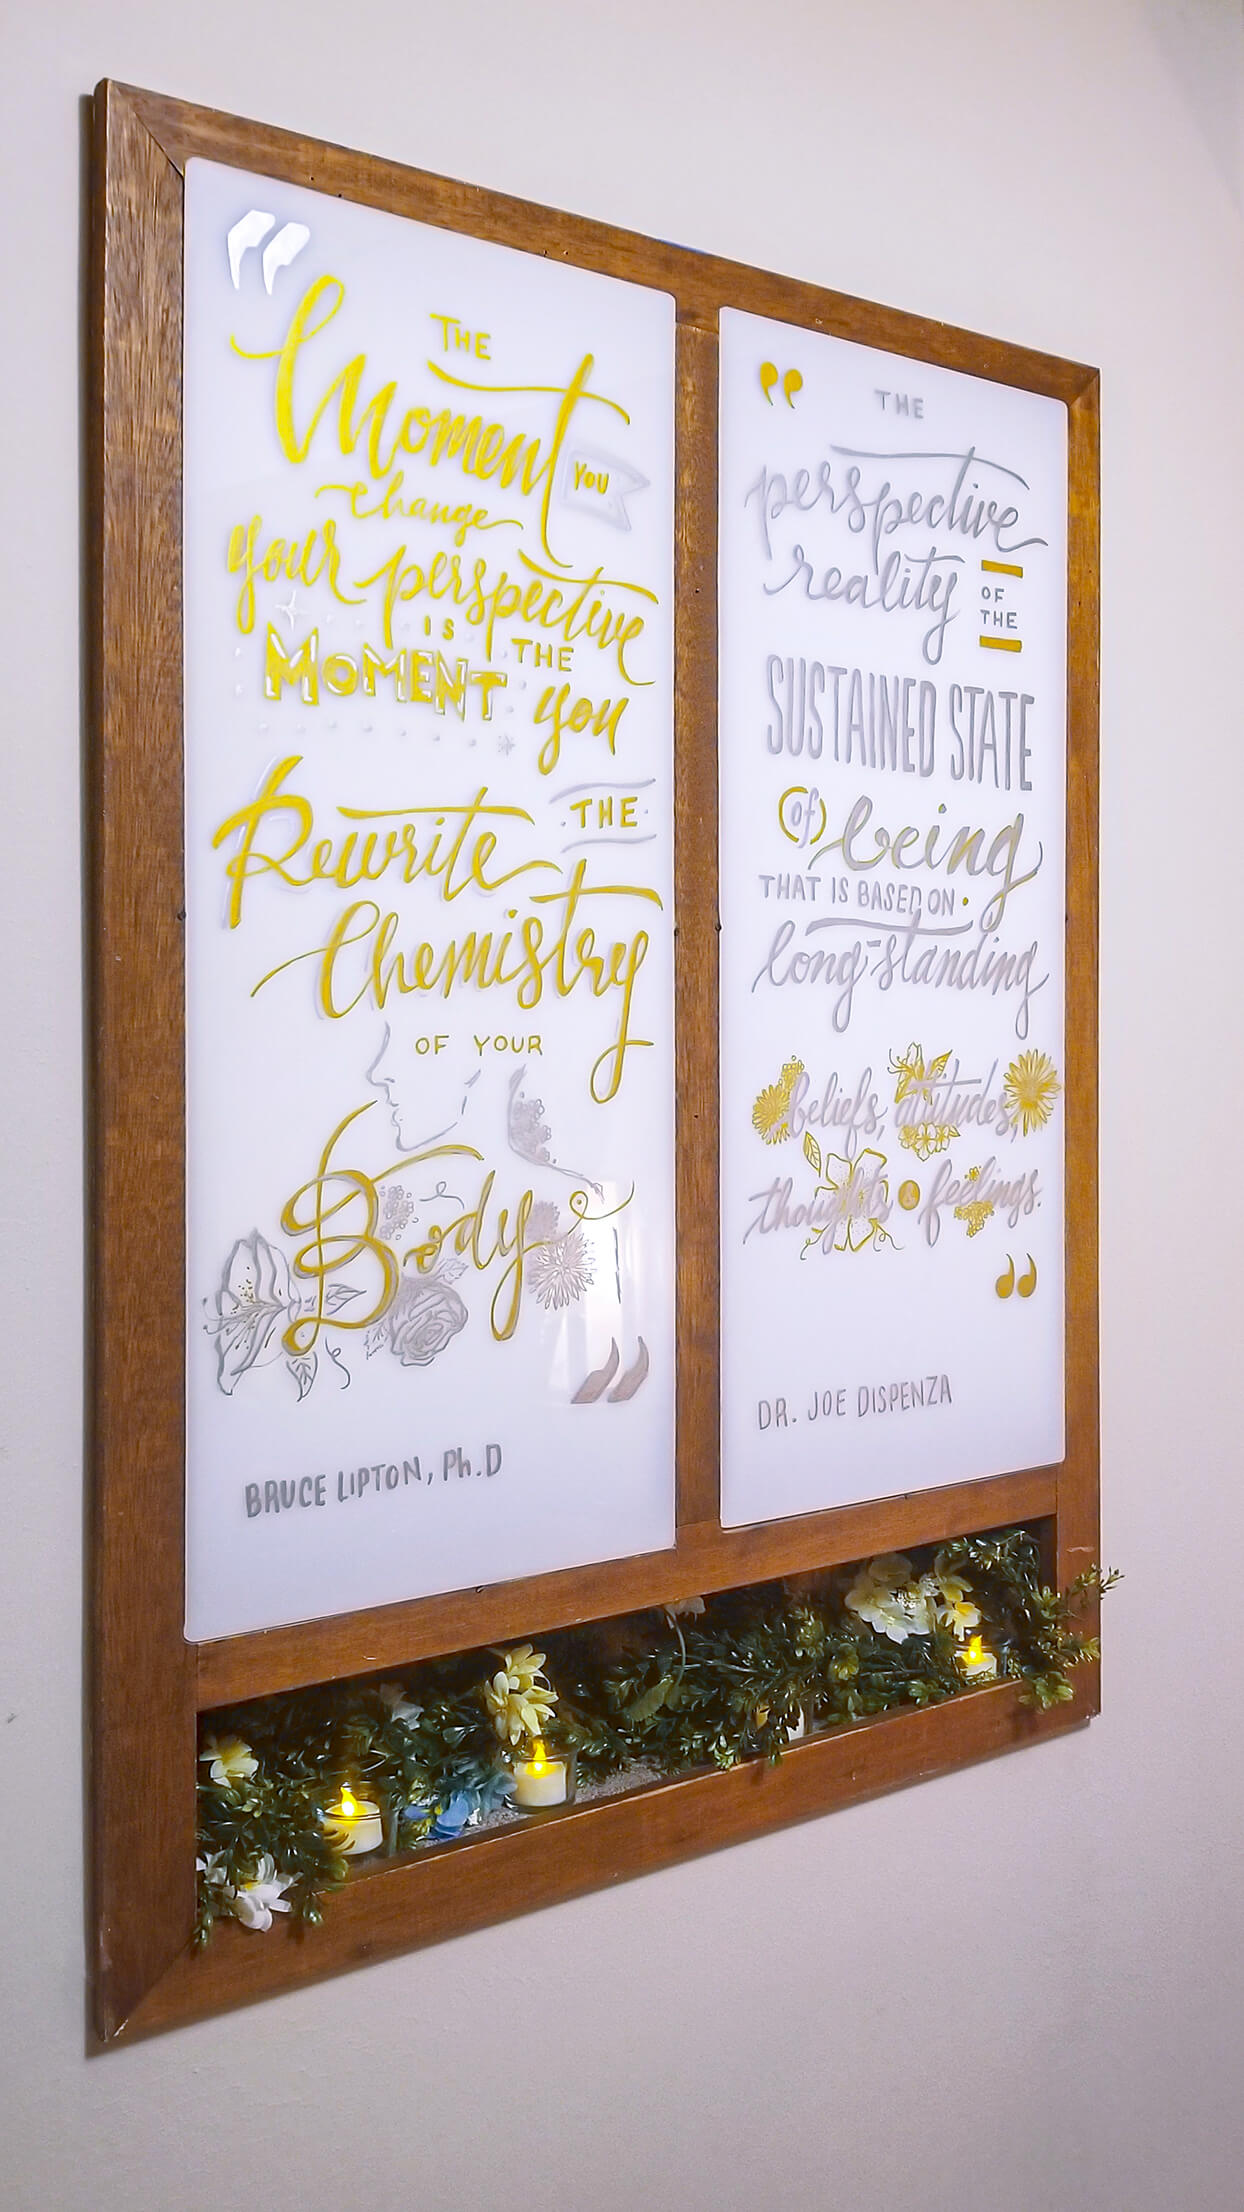 “
THE
Moment YOU
change
your perspective
IS THE
MOMENT you
Rewrite THE
Chemistry
OF YOUR
Body
”
BRUCE LIPTON, Ph.D
“
THE
perspective
reality OF THE
SUSTAINED STATE
(of) being
THAT IS BASED ON
long-standing
beliefs, attitudes,
thoughts & feelings.
”
DR. JOE DISPENZA